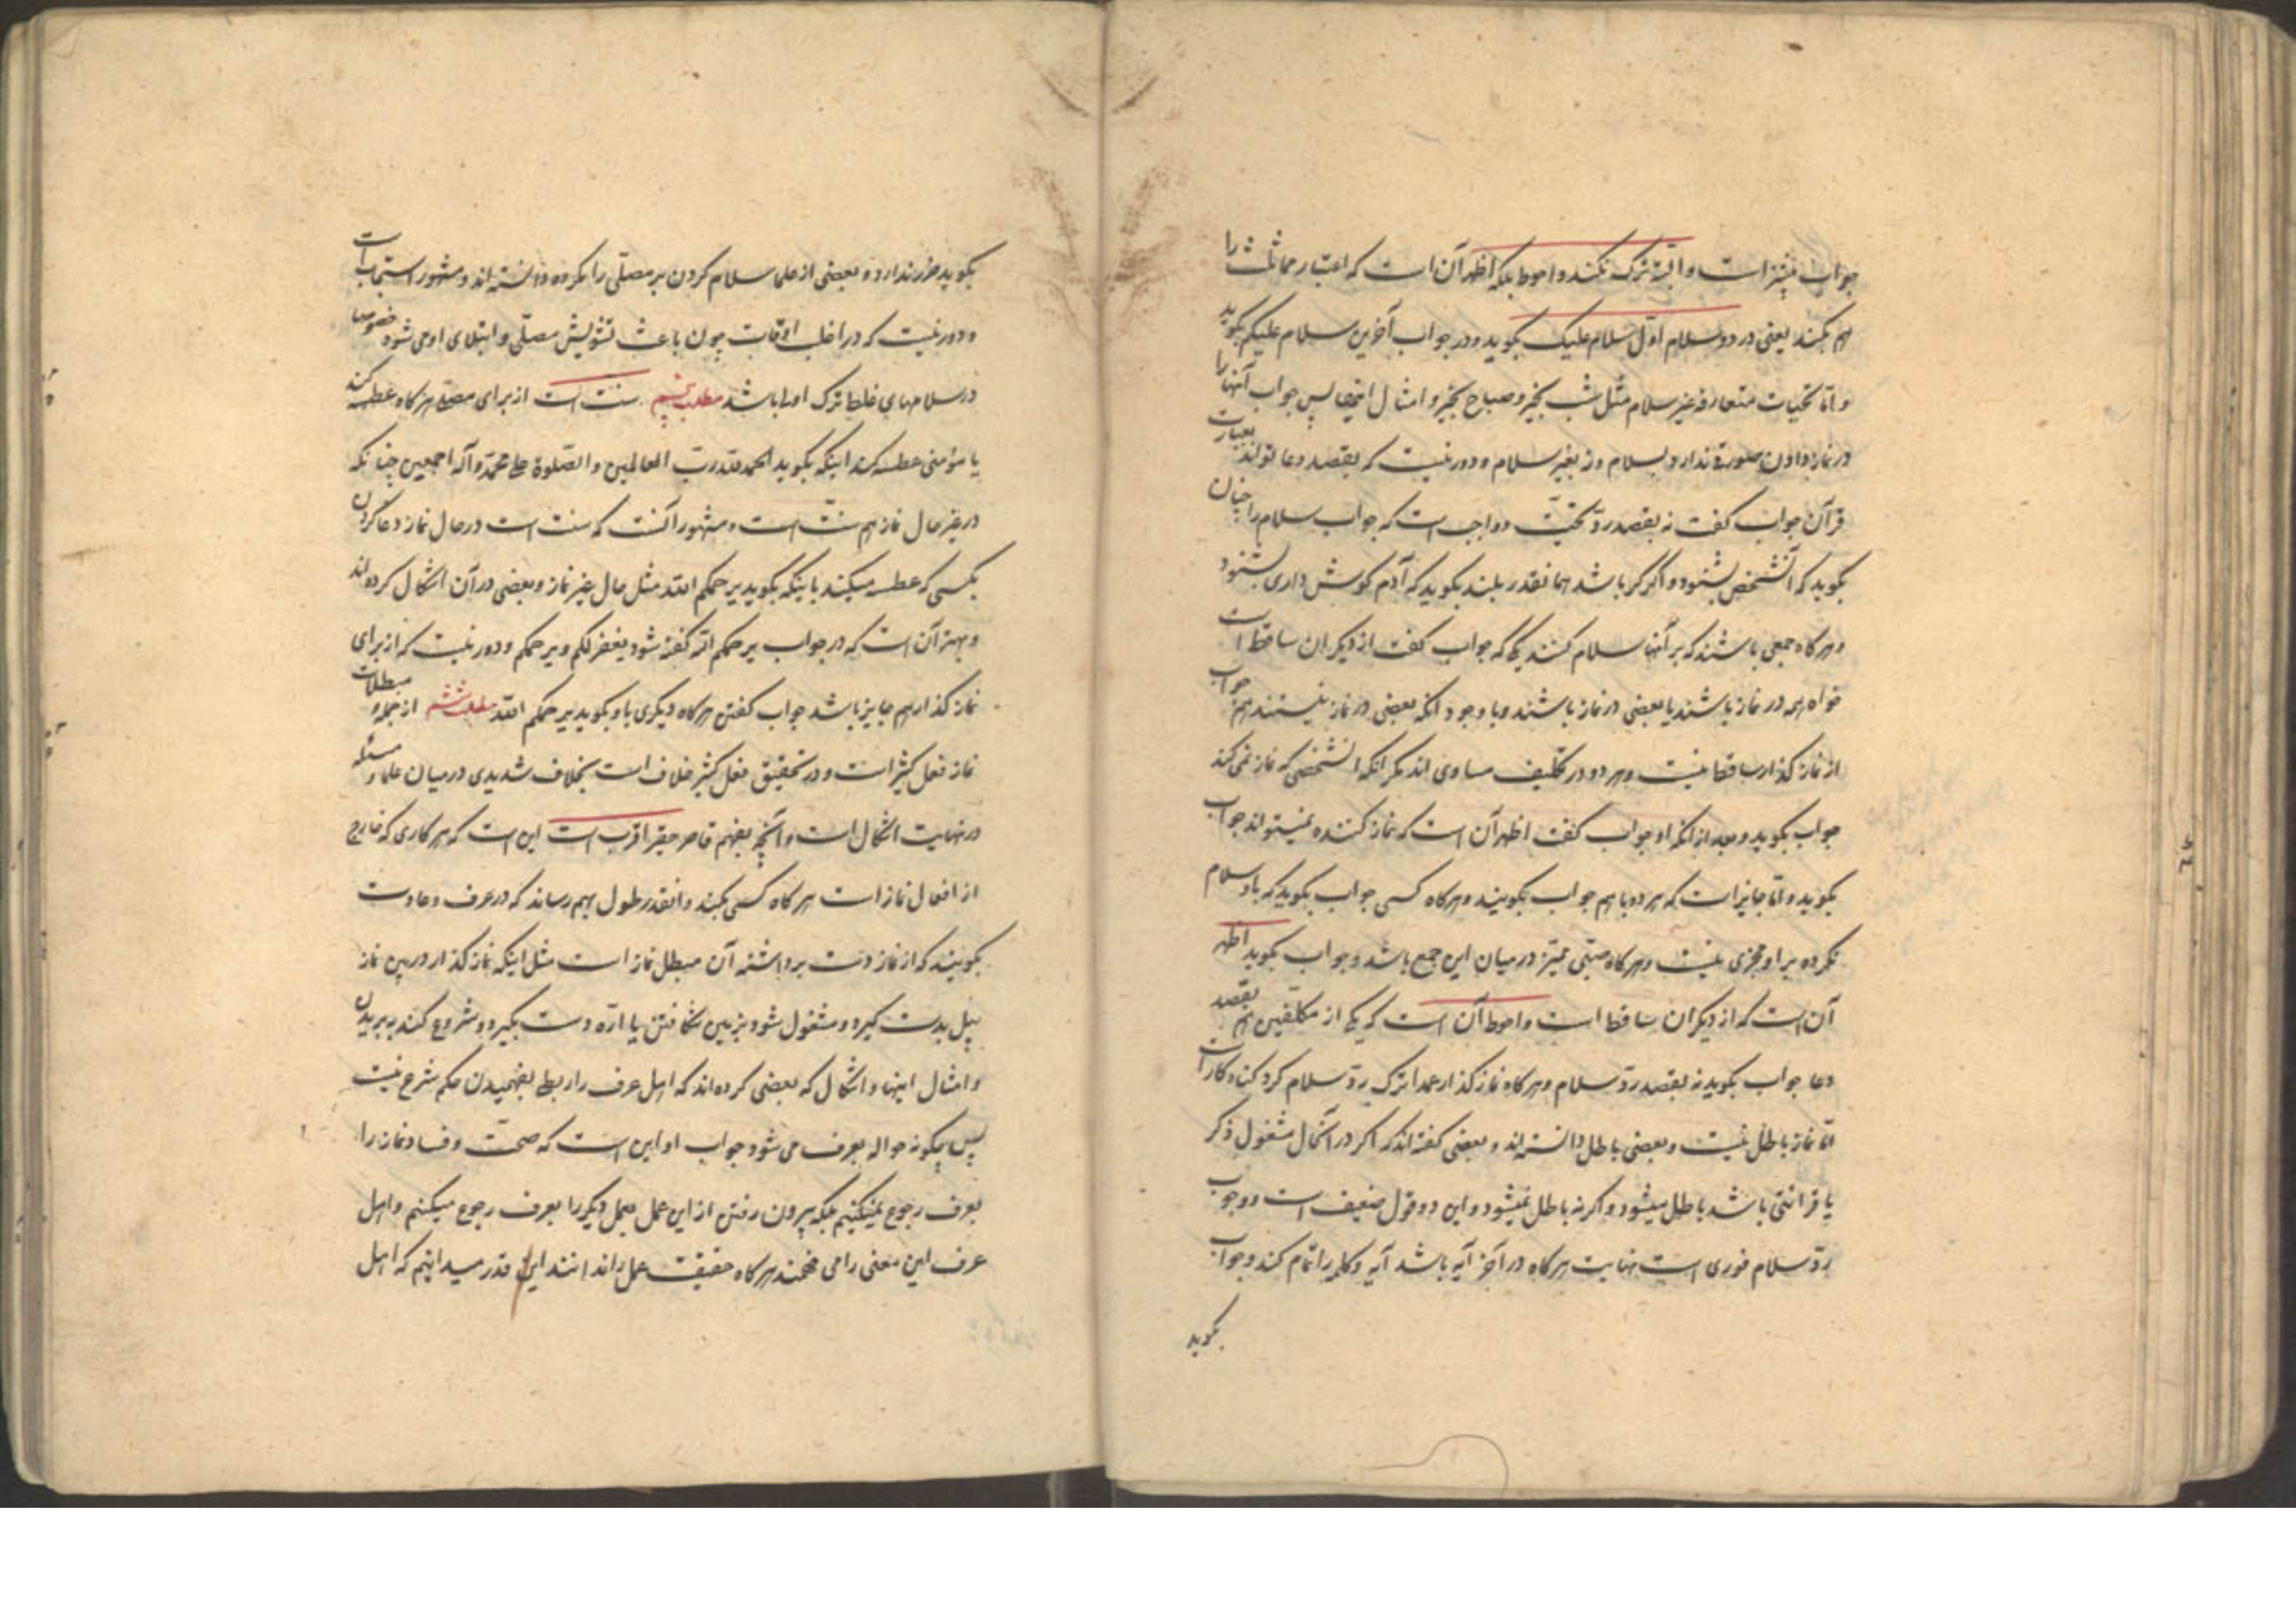 جواب بیشتر است و البته ترک نکند و احوط بلکه اظهر آن است که اعتبار مماثلت را
هم بکند یعنی در دو سلام اول سلام علیک بگوید و در جواب آخرین سلام علیکم بگوید
و اما تحیات متعارفه غیر سلام مثل شب بخیر و صباح بخیر و امثال اینها پس جواب آنها را
در نماز دادن صورة ندارد بسلام و نه بغیر سلام و دور نیست که بقصد دعا تواند بعبارت
قرآن جواب گفت نه بقصد رد تحیت و واجب است که جواب سلام را چنان
بگوید که آنشخص بشنود و اگر کر باشد همانقدر بلند بگوید که آدم گوش داری بشنود
و هرگاه جمعی باشند که بر آنها سلام کنند یکی که جواب گفت از دیگران ساقط است
خواه همه در نماز باشند یا بعضی در نماز باشند و با وجود آنکه بعضی در نماز نیستند هم جواب
از نماز گذار ساقط نیست و هر دو در تکلیف مساوی اند مگر آنکه آنشخصی که نماز نمی کند
جواب بگوید و بعد از آنکه او جواب گفت اظهر آن است که نماز کننده نمیتواند جواب
بگوید و اما جایز است که هر دو با هم جواب بگویند و هرگاه کسی جواب بگوید که باو سلام
نکرده بر او مجزی نیست و هرگاه صبی ممیّز در میان این جمع باشد و جواب بگوید اظهر
آن است که از دیگران ساقط است و احوط آن است که یکی از مکلّفین هم بقصد
دعا جواب بگوید نه بقصد ردّ سلام و هرگاه نماز گذار عمدا ترک ردّ سلام کرد گناه کار است
امّا نماز باطل نیست و بعضی باطل دانسته اند و بعضی گفته اند که اگر در آنحال مشغول ذکر
یا قرائتی باشد باطل میشود و اگر نه باطل نمیشود و این دو قول ضعیف است و وجوب
ردّ سلام فوری است نهایت هرگاه در آخر آیه باشد آیه و کلمه را تمام کند و جواب
بگوید
بگوید ضرر ندارد و بعضی از علما سلام کردن بر مصلّی را مکروه دانسته اند و مشهور استحباب است
و دور نیست که در اغلب اوقات چون باعث تشویش مصلّی و ابتلای او می شود خصوصا
در سلامهای غلط ترک اولی باشد مطلب پنجم سنت است از برای مصلی هرگاه عطسه کند
یا مؤمنی عطسه کند اینکه بگوید الحمد لله ربّ العالمین و الصّلوة علی محمّد و آله اجمعین چنانکه
در غیر حال نماز هم سنّت است و مشهور آنست که سنت است در حال نماز دعا کردن
بکسی که عطسه میکند باینکه بگوید یرحمکم الله مثل حال غیر نماز و بعضی در آن اشکال کرده اند
و بهتر آن است که در جواب یرحمکم الله گفته شود یغفر لکم و یرحمکم و دور نیست که از برای
نماز گذار هم جایز باشد جواب گفتن هرگاه دیگری باو بگوید یرحمکم الله مطلب ششم از جمله مبطلات
نماز فعل کثیر است و در تحقیق فعل کثیر خلاف است بخلاف شدیدی در میان علما و مسئله
در نهایت اشکال است و آنچه بفهم قاصر حقیر اقرب است این است که هر کاری که خارج
از افعال نماز است هرگاه کسی بکند و انقدر طول بهم رساند که در عرف و عادت
بگویند که از نماز دست برداشته آن مبطل نماز است مثل اینکه نماز گذار در بین نماز
بیل بدست گیرد و مشغول شود بزمین شکافتن یا ارّه دست بگیرد و شروع کند به بریدن
و امثال اینها و اشکال که بعضی کرده اند که اهل عرف را ربط بفهمیدن حکم شرع نیست
پس چگونه حواله بعرف می شود جواب او این است که صحّت و فساد نماز را
بعرف رجوع نمیکنیم بلکه بیرون رفتن از این عمل بعمل دیگر را بعرف رجوع میکنیم و اهل
عرف این معنی را می فهمند هرگاه حقیقت عمل را ندانند این قدر میدانیم که اهل